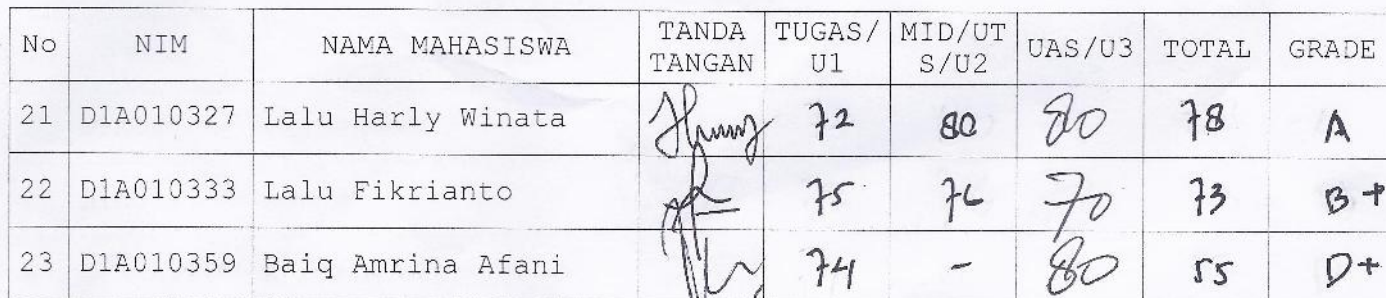 No NIM NAMA MAHASISWA TANDA TANGAN TUGAS/U1 MID/UTS/U2 UAS/U3 TOTAL GRADE
21 D1A010327 Lalu Harly Winata 72 80 80 78 A
22 D1A010333 Lalu Fikrianto 75 76 70 73 B+
23 D1A010359 Baiq Amrina Afani 74 - 80 55 D+